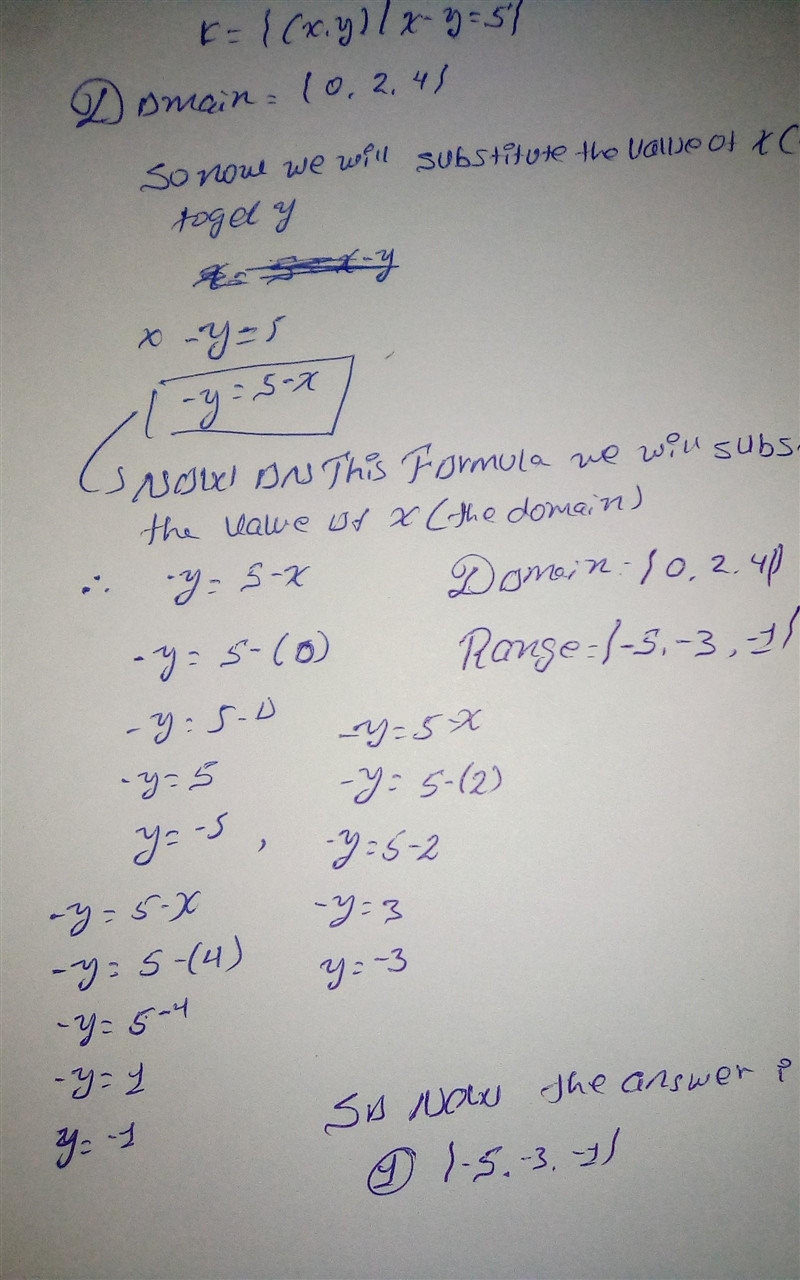 r = {(x,y) / x-y=5}
Domain = {0, 2, 4}
So now we will substitute the value of x (
to get y
x -y=5
-y=5-x
Now on This Formula we will subs
the value of x (the domain)
∴ -y= 5-x
Domain = {0, 2, 4}
-y= 5-(0)
Range={-5, -3, -1}
-y= 5-0
-y= 5
y= -5 ,
-y=5-x
-y= 5-(2)
-y=5-2
-y= 3
y= -3
-y= 5-x
-y= 5-(4)
-y= 5-4
-y= 1
y= -1
So Now the answer i
① {-5, -3, -1}